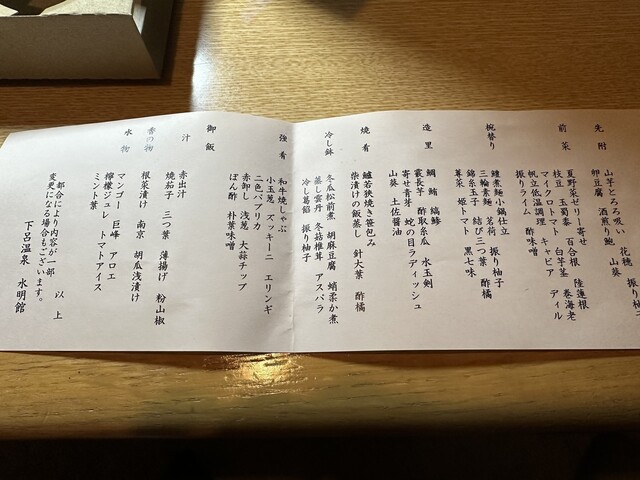 先附
山芋とろろ吸い 花穂 振り柚子
卵豆腐 酒煎り鮑 山葵
前菜
夏野菜ゼリー寄せ 百合根 陸蓮根
枝豆 玉蜀黍 白芋茎 巻海老
マイクロトマト キャビア ディル
帆立低温調理 酢味噌
振りライム
椀替り
鱧煮麺小鍋仕立
三輪素麺 茗荷 振り柚子
錦糸玉子 結び三つ葉 酢橘
蓴菜 姫トマト 黒七味
造里
鯛 鮪 縞鯵
莪長芋 酢取糸瓜 水玉剣
寄せ青芽 蛇の目ラディッシュ
山葵 土佐醤油
焼肴
鱸若狭焼き笹包み
柴漬けの飯蒸し 針大葉 酢橘
冷し鉢
冬瓜松前煮 胡麻豆腐 蛸柔か煮
蒸し雲丹 冬菇椎茸 アスパラ
冷し葛餡 振り柚子
強肴
和牛焼しゃぶ
小玉葱 ズッキーニ エリンギ
二色パプリカ
赤卸し 浅葱 大蒜チップ
ぽん酢 朴葉味噌
御飯
汁
赤出汁
焼茄子 三つ葉 薄揚げ 粉山椒
香の物
根菜漬け 南京 胡瓜浅漬け
水物
マンゴー 巨峰 アロエ
檸檬ジュレ トマトアイス
ミント葉
以上
都合により内容が一部
変更になる場合もございます。
下呂温泉 水明館